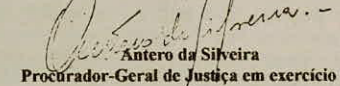 Antero da Silveira
Procurador-Geral de Justiça em exercício